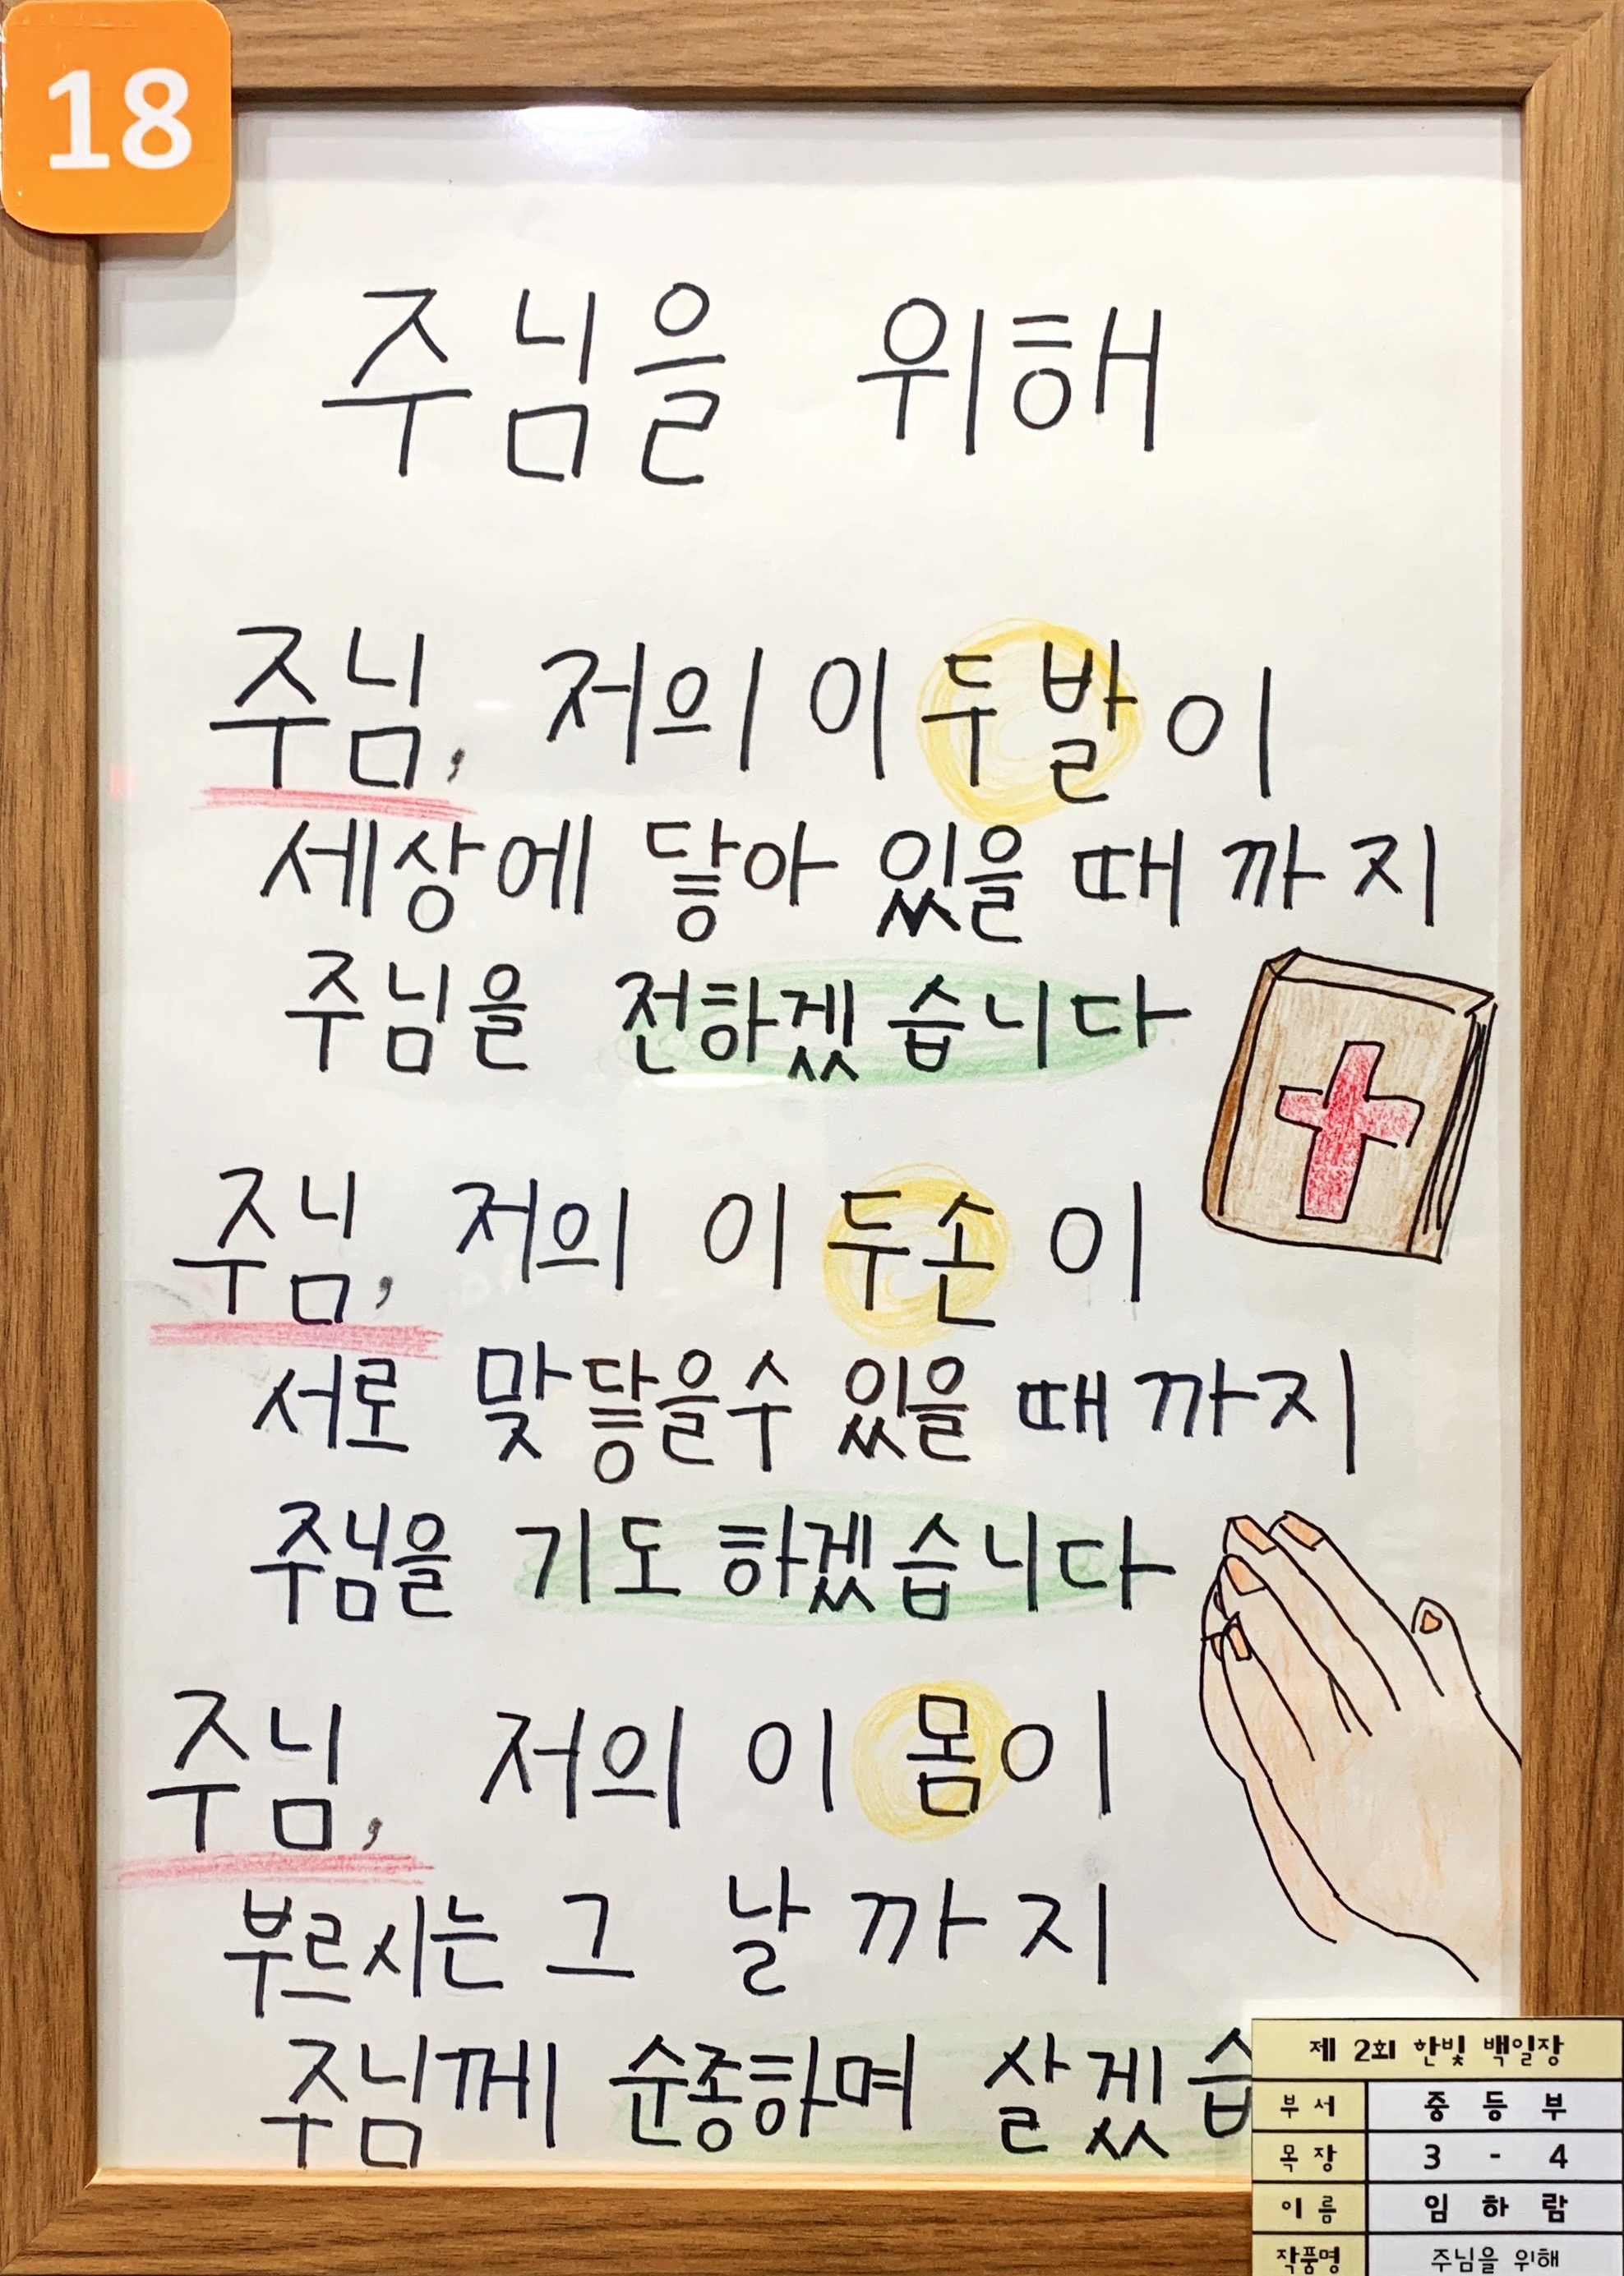 18
주님을 위해
주님, 저의 이 두 발이
세상에 닿아 있을 때 까지
주님을 전하겠습니다
주님, 저의 이 두손이
서로 맞닿을수 있을 때까지
주님을 기도 하겠습니다
주님, 저의 이 몸이
부르시는 그 날까지
주님께 순종하며 살겠습
제 2회 한빛 백일장
부서 중 등 부
목장 3 - 4
이름 임 하 람
작품명 주님을 위해